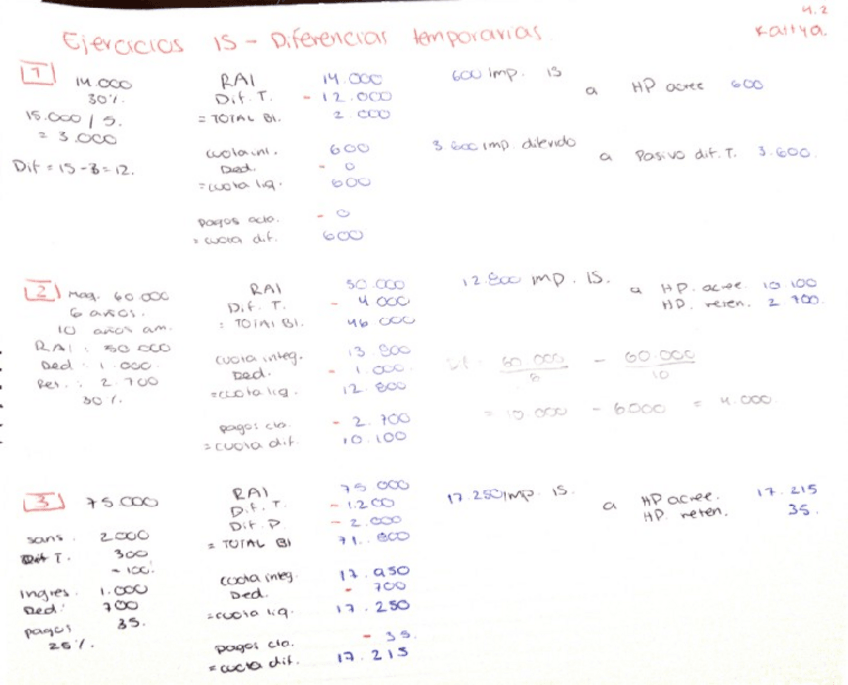 4.2
Ejercicios IS - Diferencias temporarias
Kattya.
1
14.000
30%.
15.000 / 5.
= 3.000
Dif = 15 - 3 = 12.
RAI 14.000
Dif. T. - 12.000
= TOTAL BI. 2.000
cuota int. 600
Ded. - 0
= cuota liq. 600
pagos acta. - 0
= cuota dif. 600
600 imp. IS
a HP acree 600
3.600 imp. diferido
a Pasivo dif. T. 3.600.
2
Maq. 60.000
6 años.
10 años am.
RAI : 50 000
Ded : 1.000.
Ret. : 2.700
30%.
RAI 50.000
D.f. T. - 4 000
= TOTAL BI. 46 000
cuota integ. 13.800
Ded. - 1.000.
= cuota liq. 12.800
pagos cta. - 2.700
= cuota dif. 10.100
12.800 imp. IS. a HP. acree. 10.100
HP. reten. 2.700.
60.000 - 60.000
10
- 6000 = 4.000.
3
75.000
sans. 2.000
Dif T. 300
- 100.
Ingres. 1.000
Ded: 700
pagos 35.
25%.
RAI 75 000
D.f. T. - 1.200
Dif. P. - 2.000
= TOTAL BI 71.800
cuota integ. 17.950
Ded. - 700
= cuota liq. 17.250
pagos cta. - 35.
= cuota dif. 17.215
17.250 imp. IS. a HP acree. 17.215
HP. reten. 35.